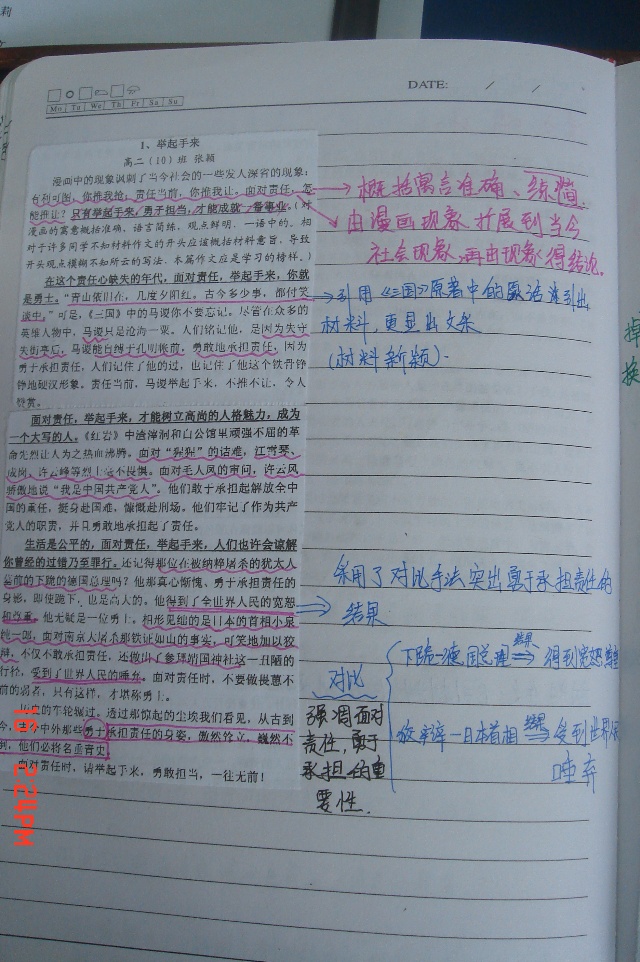 莉
DATE: / /
Mo Tu We Th Fr Sa Su
1、举起手来
高二（10）班 张颖
漫画中的现象讽刺了当今社会的一些发人深省的现象：
有利可图，你推我抢，责任当前，你推我让。面对责任，怎
能推让？只有举起手来，勇于担当，才能成就一番事业。（对
漫画的寓意概括准确，语言简练，观点鲜明，一语中的。相
对于许多同学不知材料作文的开头应该概括材料意旨，导致
开头观点模糊不知所云的写法，本篇作文应是学习的榜样。）
在这个责任心缺失的年代，面对责任，举起手来，你就
是勇士。“青山依旧在，几度夕阳红。古今多少事，都付笑
谈中。”可是，《三国》中的马谡你不要忘记。尽管在众多的
英雄人物中，马谡只是沧海一粟。人们铭记他，是因为失守
失街亭后，马谡能自缚于孔明帐前，勇敢地承担责任，因为
勇于承担责任，人们记住了他的过，也记住了他这个铁骨铮
铮地硬汉形象。责任当前，马谡举起手来，不推不让，令人
赞赏。
面对责任，举起手来，才能树立高尚的人格魅力，成为
一个大写的人。《红岩》中渣滓洞和白公馆里顽强不屈的革
命先烈让人为之热血沸腾。面对“猩猩”的诘难，江雪琴、
成岗、许云峰等烈士毫不畏惧。面对毛人凤的审问，许云凤
骄傲地说“我是中国共产党人”。他们敢于承担起解放全中
国的重任，挺身赴国难，慷慨赴刑场。他们牢记了作为共产
党人的职责，并且勇敢地承担起了责任。
生活是公平的，面对责任，举起手来，人们也许会谅解
你曾经的过错乃至罪行。还记得那位在被纳粹屠杀的犹太人
墓前的下跪的德国总理吗？他那真心惭愧、勇于承担责任的
身影，即使跪下，也是高大的。他得到了全世界人民的宽恕
和尊重，他无疑是一位勇士。相形见绌的是日本的首相小泉
纯一郎，面对南京大屠杀那铁证如山的事实，可笑地加以狡
辩，不仅不敢承担责任，还做出了参拜靖国神社这一丑陋的
行径，受到了世界人民的唾弃。面对责任时，不要做畏葸不
前的弱者，只有这样，才堪称勇士。
的车轮辗过，透过那惊起的尘埃我们看见，从古到
今，中外那些勇士承担责任的身姿，傲然耸立，巍然不
倒，他们必将名垂青史。
面对责任时，请举起手来，勇敢担当，一往无前！
概括寓言准确、练简
由漫画现象扩展到当今
社会现象，再由现象得结论。
引用《三国》原著中的歌话来引出
材料，更显出文采
（材料新颖）.
采用了对比手法突出勇于承担责任的
结果
下跪—德国总理 结果 得到宽恕尊重
对比
强调面对
责任，勇于
承担的重
要性.
狡辩—日本首相 结果 受到世界人民
唾弃
16 2:24PM